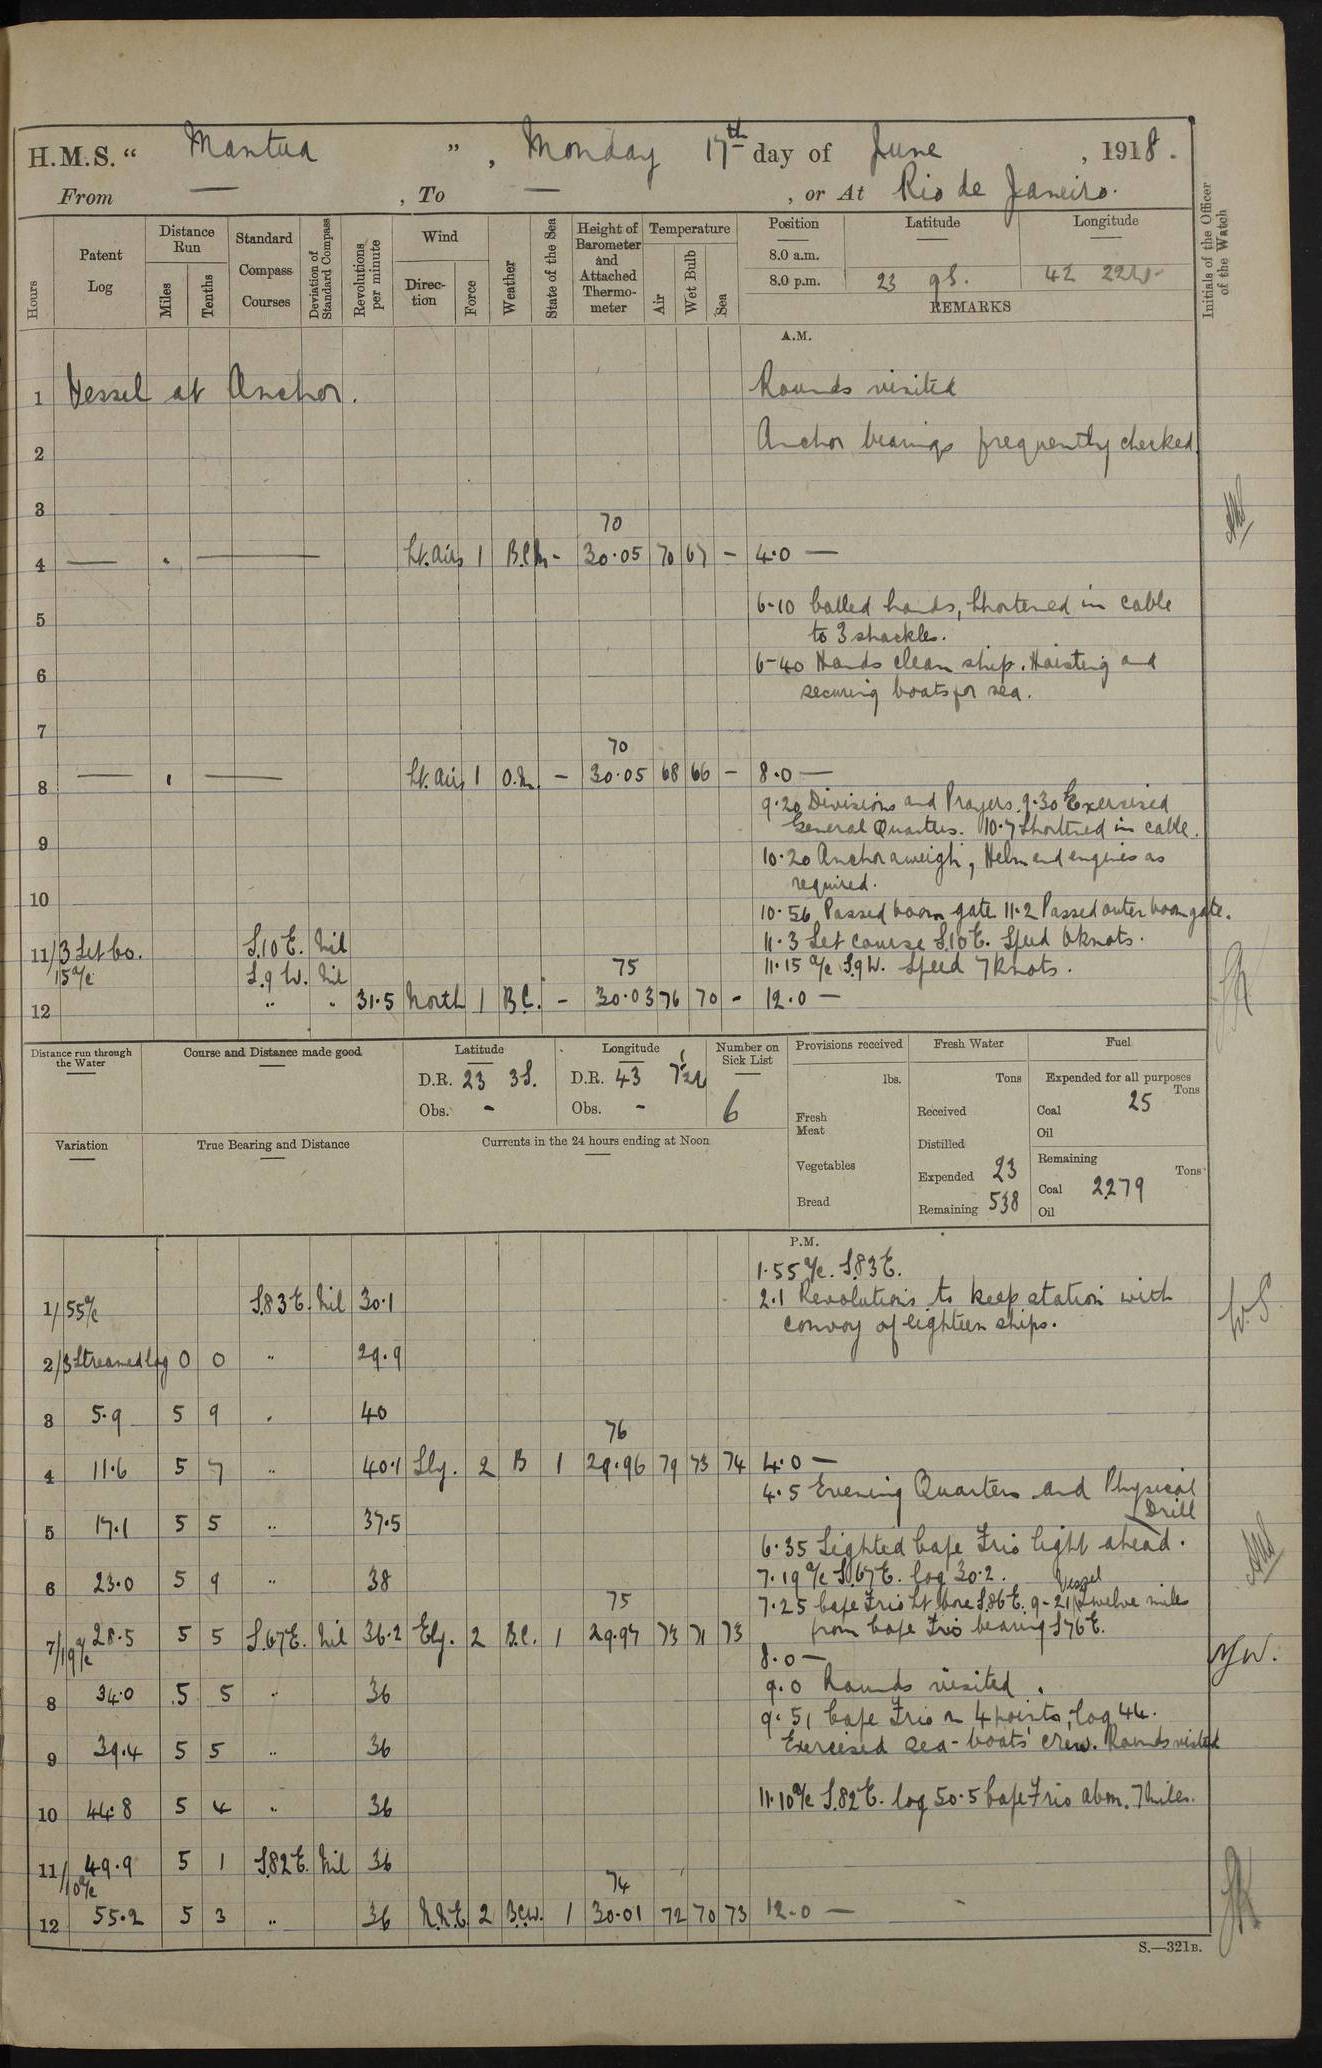 H.M.S. " Mantua ", Monday 17th day of June, 1918.
From — , To — , or At Rio de Janeiro.
Hours
Patent Log
Distance Run
Miles
Tenths
Standard Compass Courses
Deviation of Standard Compass
Revolutions per minute
Wind
Direction
Force
Weather
State of the Sea
Height of Barometer and Attached Thermometer
Temperature
Air
Wet Bulb
Sea
Position Latitude Longitude
8.0 a.m.
8.0 p.m. 23 9S. 42 22W
REMARKS
Initials of the Officer of the Watch
A.M.
1 Vessel at Anchor. Rounds visited
2 Anchor bearings frequently checked.
3
70
4 — — Lt. airs 1 B.C.M - 30.05 70 67 — 4.0 —
5 6-10 Called hands, Shortened in cable
to 3 shackles.
6 6-40 Hands clean ship. Hoisting and
securing boats for sea.
7
70
8 — — Lt. airs 1 O.M. — 30.05 68 66 — 8.0 —
9.20 Divisions and Prayers. 9.30 Exercised
9 General Quarters. 10.7 Shortened in cable.
10.20 Anchor aweigh, Helm and engines as
required.
10 10.56 Passed boom gate 11.2 Passed outer boom gate.
11/3 Set Co. S.10 E. Nil 11.3 Set course S.10 E. Speed 6 knots.
15 a/c S.9 W. Nil 75 11.15 a/c S.9 W. Speed 7 knots.
12 " " 31.5 North 1 B.C. — 30.03 76 70 - 12.0 —
Distance run through the Water
Course and Distance made good
Latitude
D.R. 23 3S.
Obs. -
Longitude
D.R. 43 7½W
Obs. -
Number on Sick List
6
Provisions received
lbs.
Fresh Meat
Vegetables
Bread
Fresh Water
Tons
Received
Distilled
Expended 23
Remaining 538
Fuel
Expended for all purposes
Tons
Coal 25
Oil
Remaining
Tons
Coal 2279
Oil
Variation
True Bearing and Distance
Currents in the 24 hours ending at Noon
P.M.
1.55 a/c. S.83 E.
1/55 a/c S.83 E. Nil 30.1 2.1 Revolutions to keep station with
convoy of eighteen ships.
W.S
2/3 Streamed log 0 0 " 29.9
3 5.9 5 9 " 40
76
4 11.6 5 7 " 40.1 Sly. 2 B 1 29.96 79 73 74 4.0 —
4.5 Evening Quarters and Physical
Drill
5 17.1 5 5 " 37.5
6.35 Sighted Cape Frio light ahead.
6 23.0 5 9 " 38 7.19 a/c S.67 E. log 30.2.
75 7.25 Cape Frio Lt bore S.86 E. 9-21 Vessel twelve miles
7/19 a/c 28.5 5 5 S.67 E. Nil 36.2 Ely. 2 B.C. 1 29.97 73 71 73 from Cape Frio bearing S76 E.
8.0 —
8 34.0 5 5 " 36 9.0 Rounds visited.
9.51 Cape Frio on 4 points, log 44.
9 39.4 5 5 " 36 Exercised sea-boats' crew. Rounds visited
10 44.8 5 4 " 36 11.10 a/c S.82 E. log 50.5 Cape Frio abm. 7 miles.
11/10 a/c 49.9 5 1 S.82 E. Nil 36
74
12 55.2 5 3 " 36 N.N.E. 2 B.C.W. 1 30.01 72 70 73 12.0 —
S.—321B.